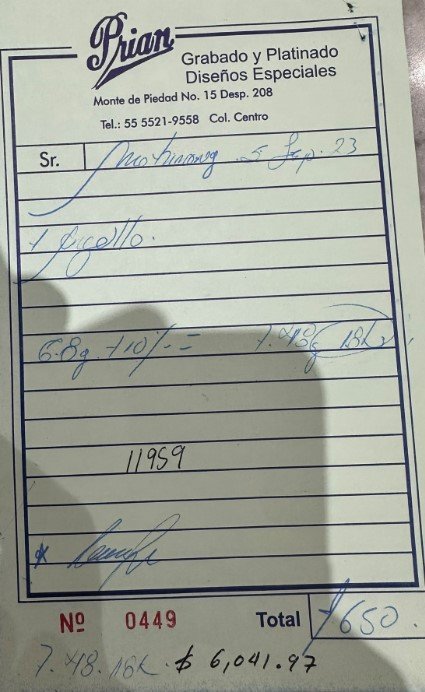 Prian
Grabado y Platinado
Diseños Especiales
Monte de Piedad No. 15 Desp. 208
Tel.: 55 5521-9558 Col. Centro
Sr. 5 Sep. 23
1
6.8g +10% = 7.48g 18k
11959
Nº 0449 Total $650.
7.48. 18k. $ 6,041.97